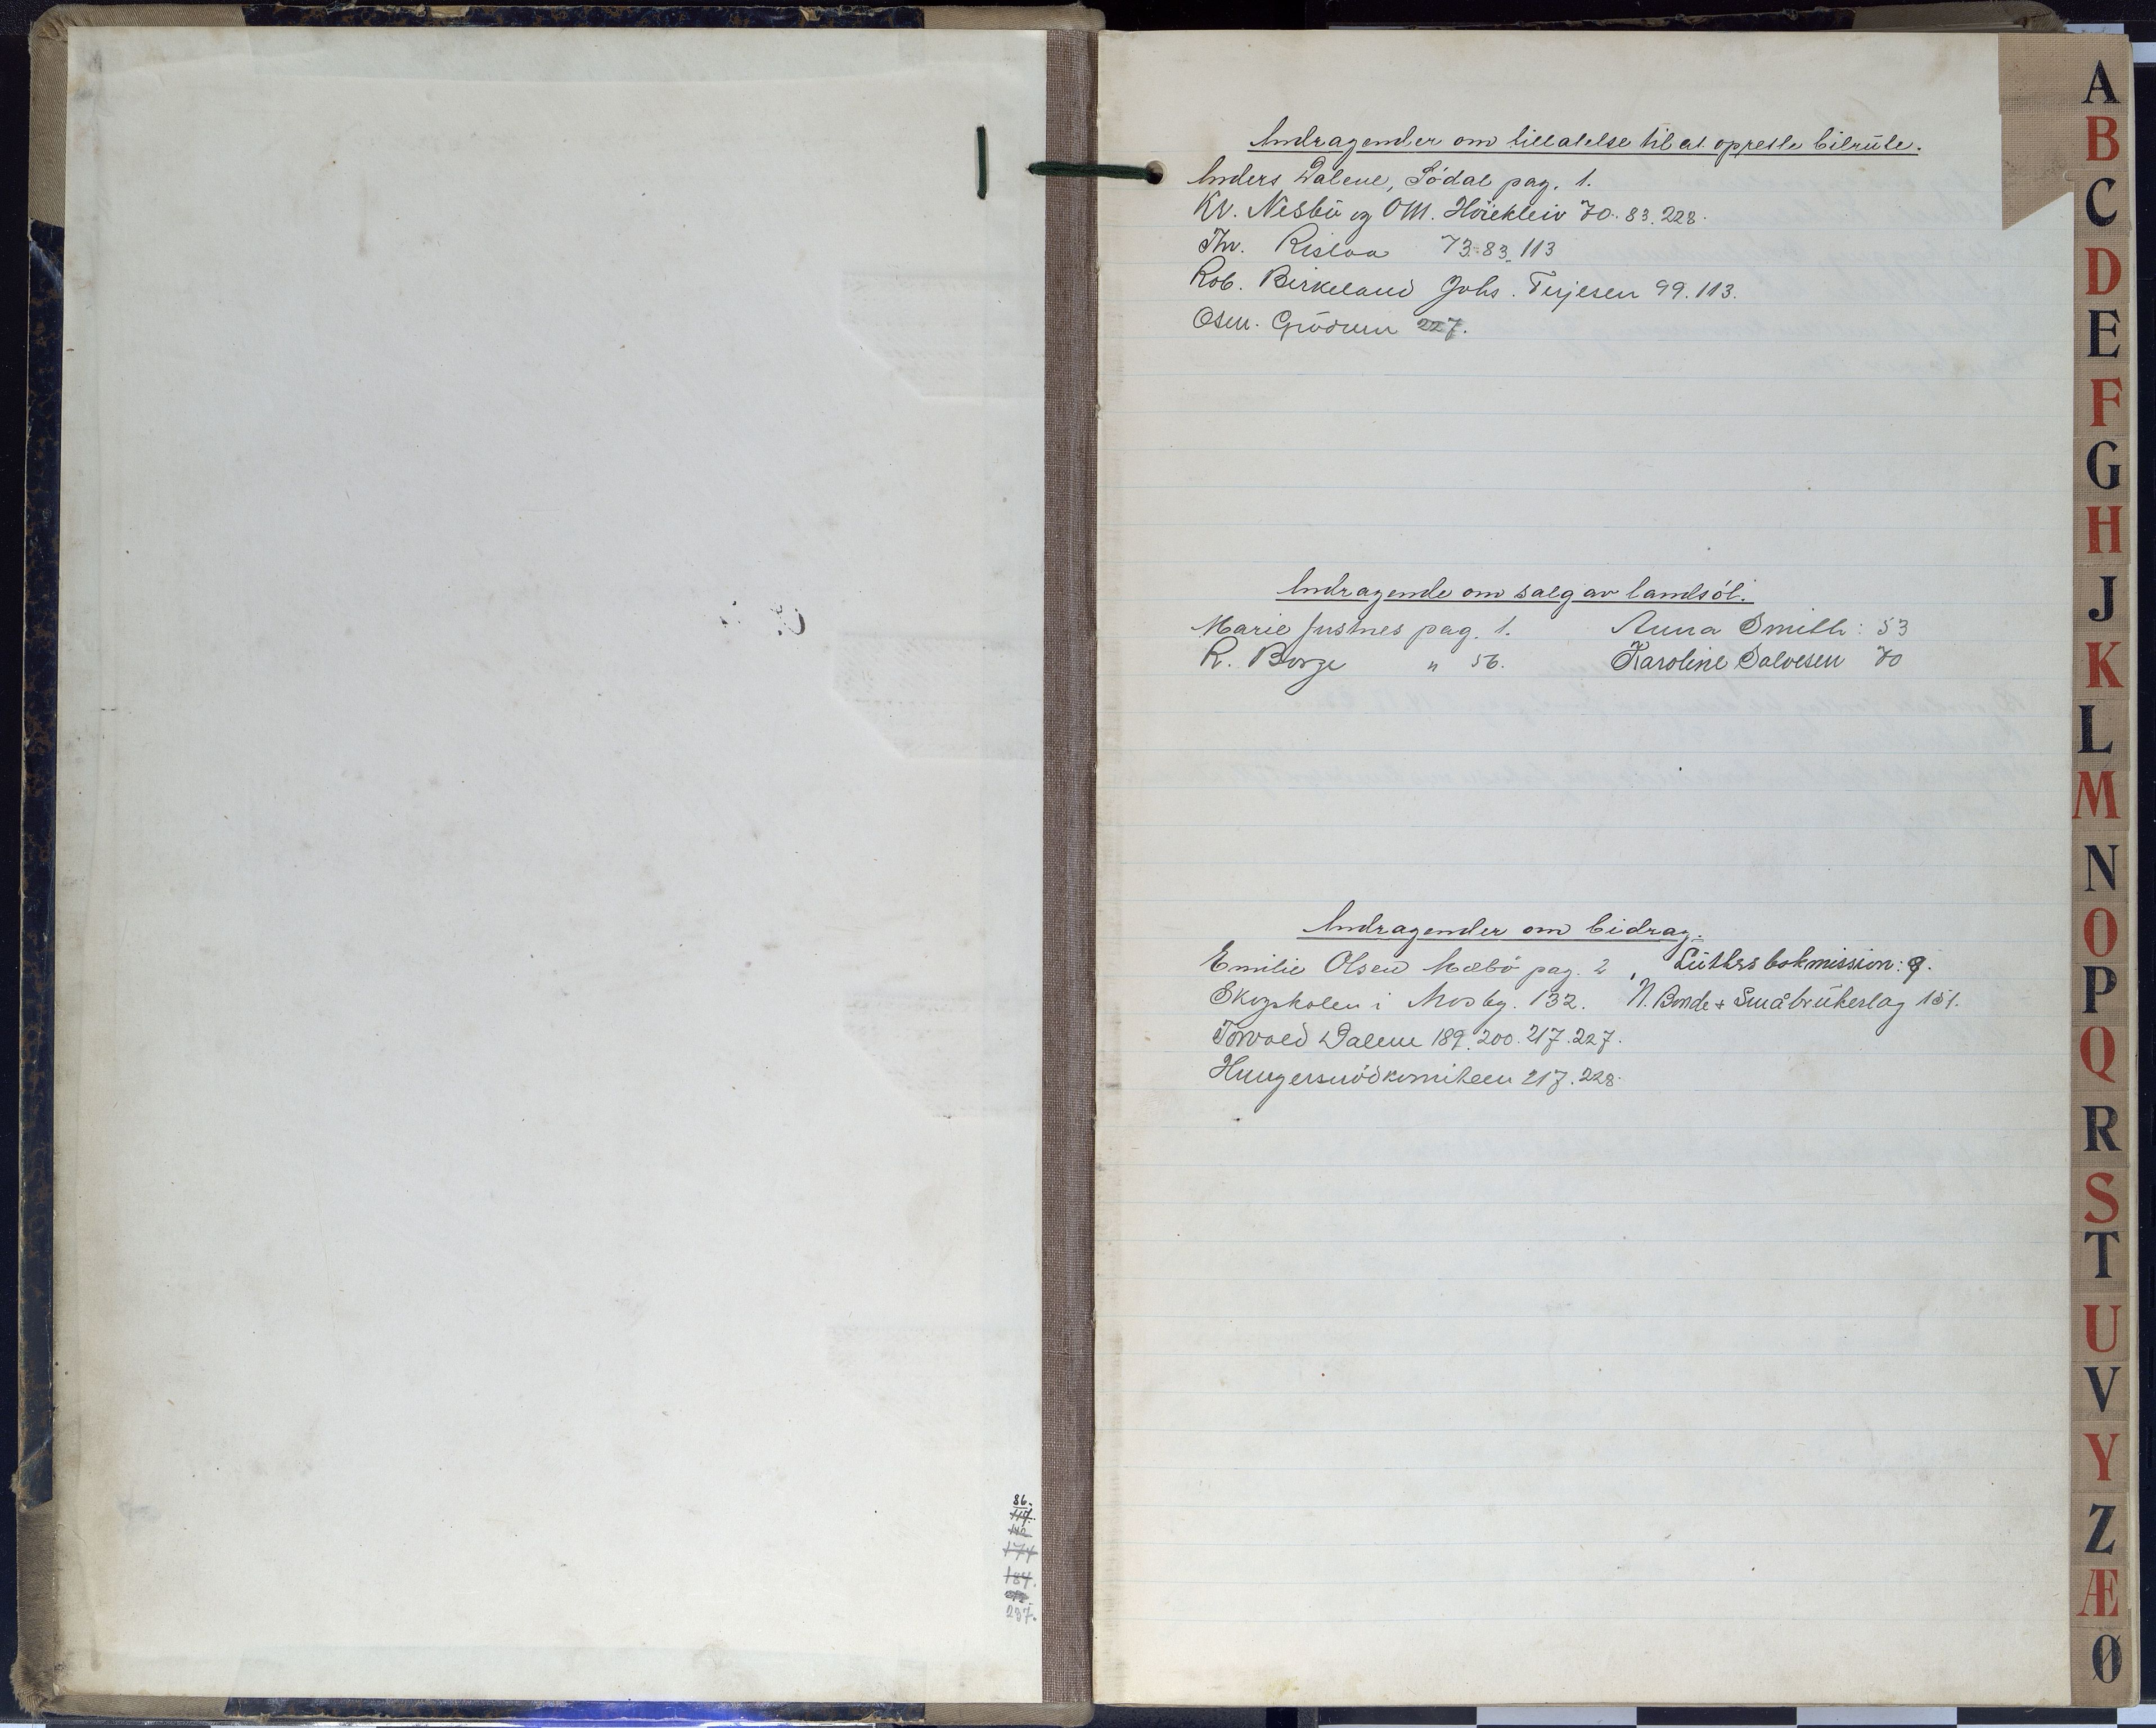 86.
119.
142
174
184.
212
237.
Andragender om tillatelse til at oprette bilrute.
Anders Dalene, Södal pag. 1.
Kr. Nesbü og O M. Höiekleiv 70. 83. 228.
Thv. Risløa 73-83. 113
Rob. Birkeland Johs. Terjesen 99. 113.
Osm. Gródum 227.
Andragende om salg av landsöl.
Marie Justnes pag. 1. Anna Smith: 53
R. Borge " 56. Karoline Salvesen 70
Andragender om bidrag.
Emilie Olsen Mæbö pag. 2, Luthers bokmission: 9.
Skogskolen i Mosby. 132. N. Bonde & Småbrukerlag 151.
Torvald Dalene 189. 200. 217. 227.
Hungersnödkomiteen 217. 228.
A
B
C
D
E
F
G
H
J
K
L
M
N
O
P
Q
R
S
T
U
V
Y
Z
Æ
Ø